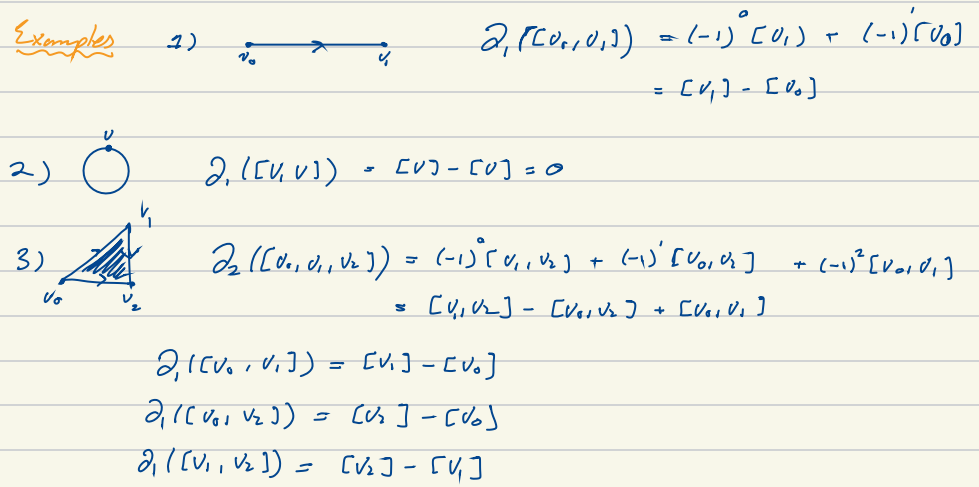 Examples 1) v₀ v₁ ∂₁([v₀,v₁]) = (-1)⁰[v₁] + (-1)¹[v₀]
= [v₁] - [v₀]
v
2) ∂₁([v,v]) = [v] - [v] = 0
v₁
3) ∂₂([v₀,v₁,v₂]) = (-1)⁰[v₁,v₂] + (-1)¹[v₀,v₂] + (-1)²[v₀,v₁]
v₀ v₂
= [v₁,v₂] - [v₀,v₂] + [v₀,v₁]
∂₁([v₀,v₁]) = [v₁] - [v₀]
∂₁([v₀,v₂]) = [v₂] - [v₀]
∂₁([v₁,v₂]) = [v₂] - [v₁]